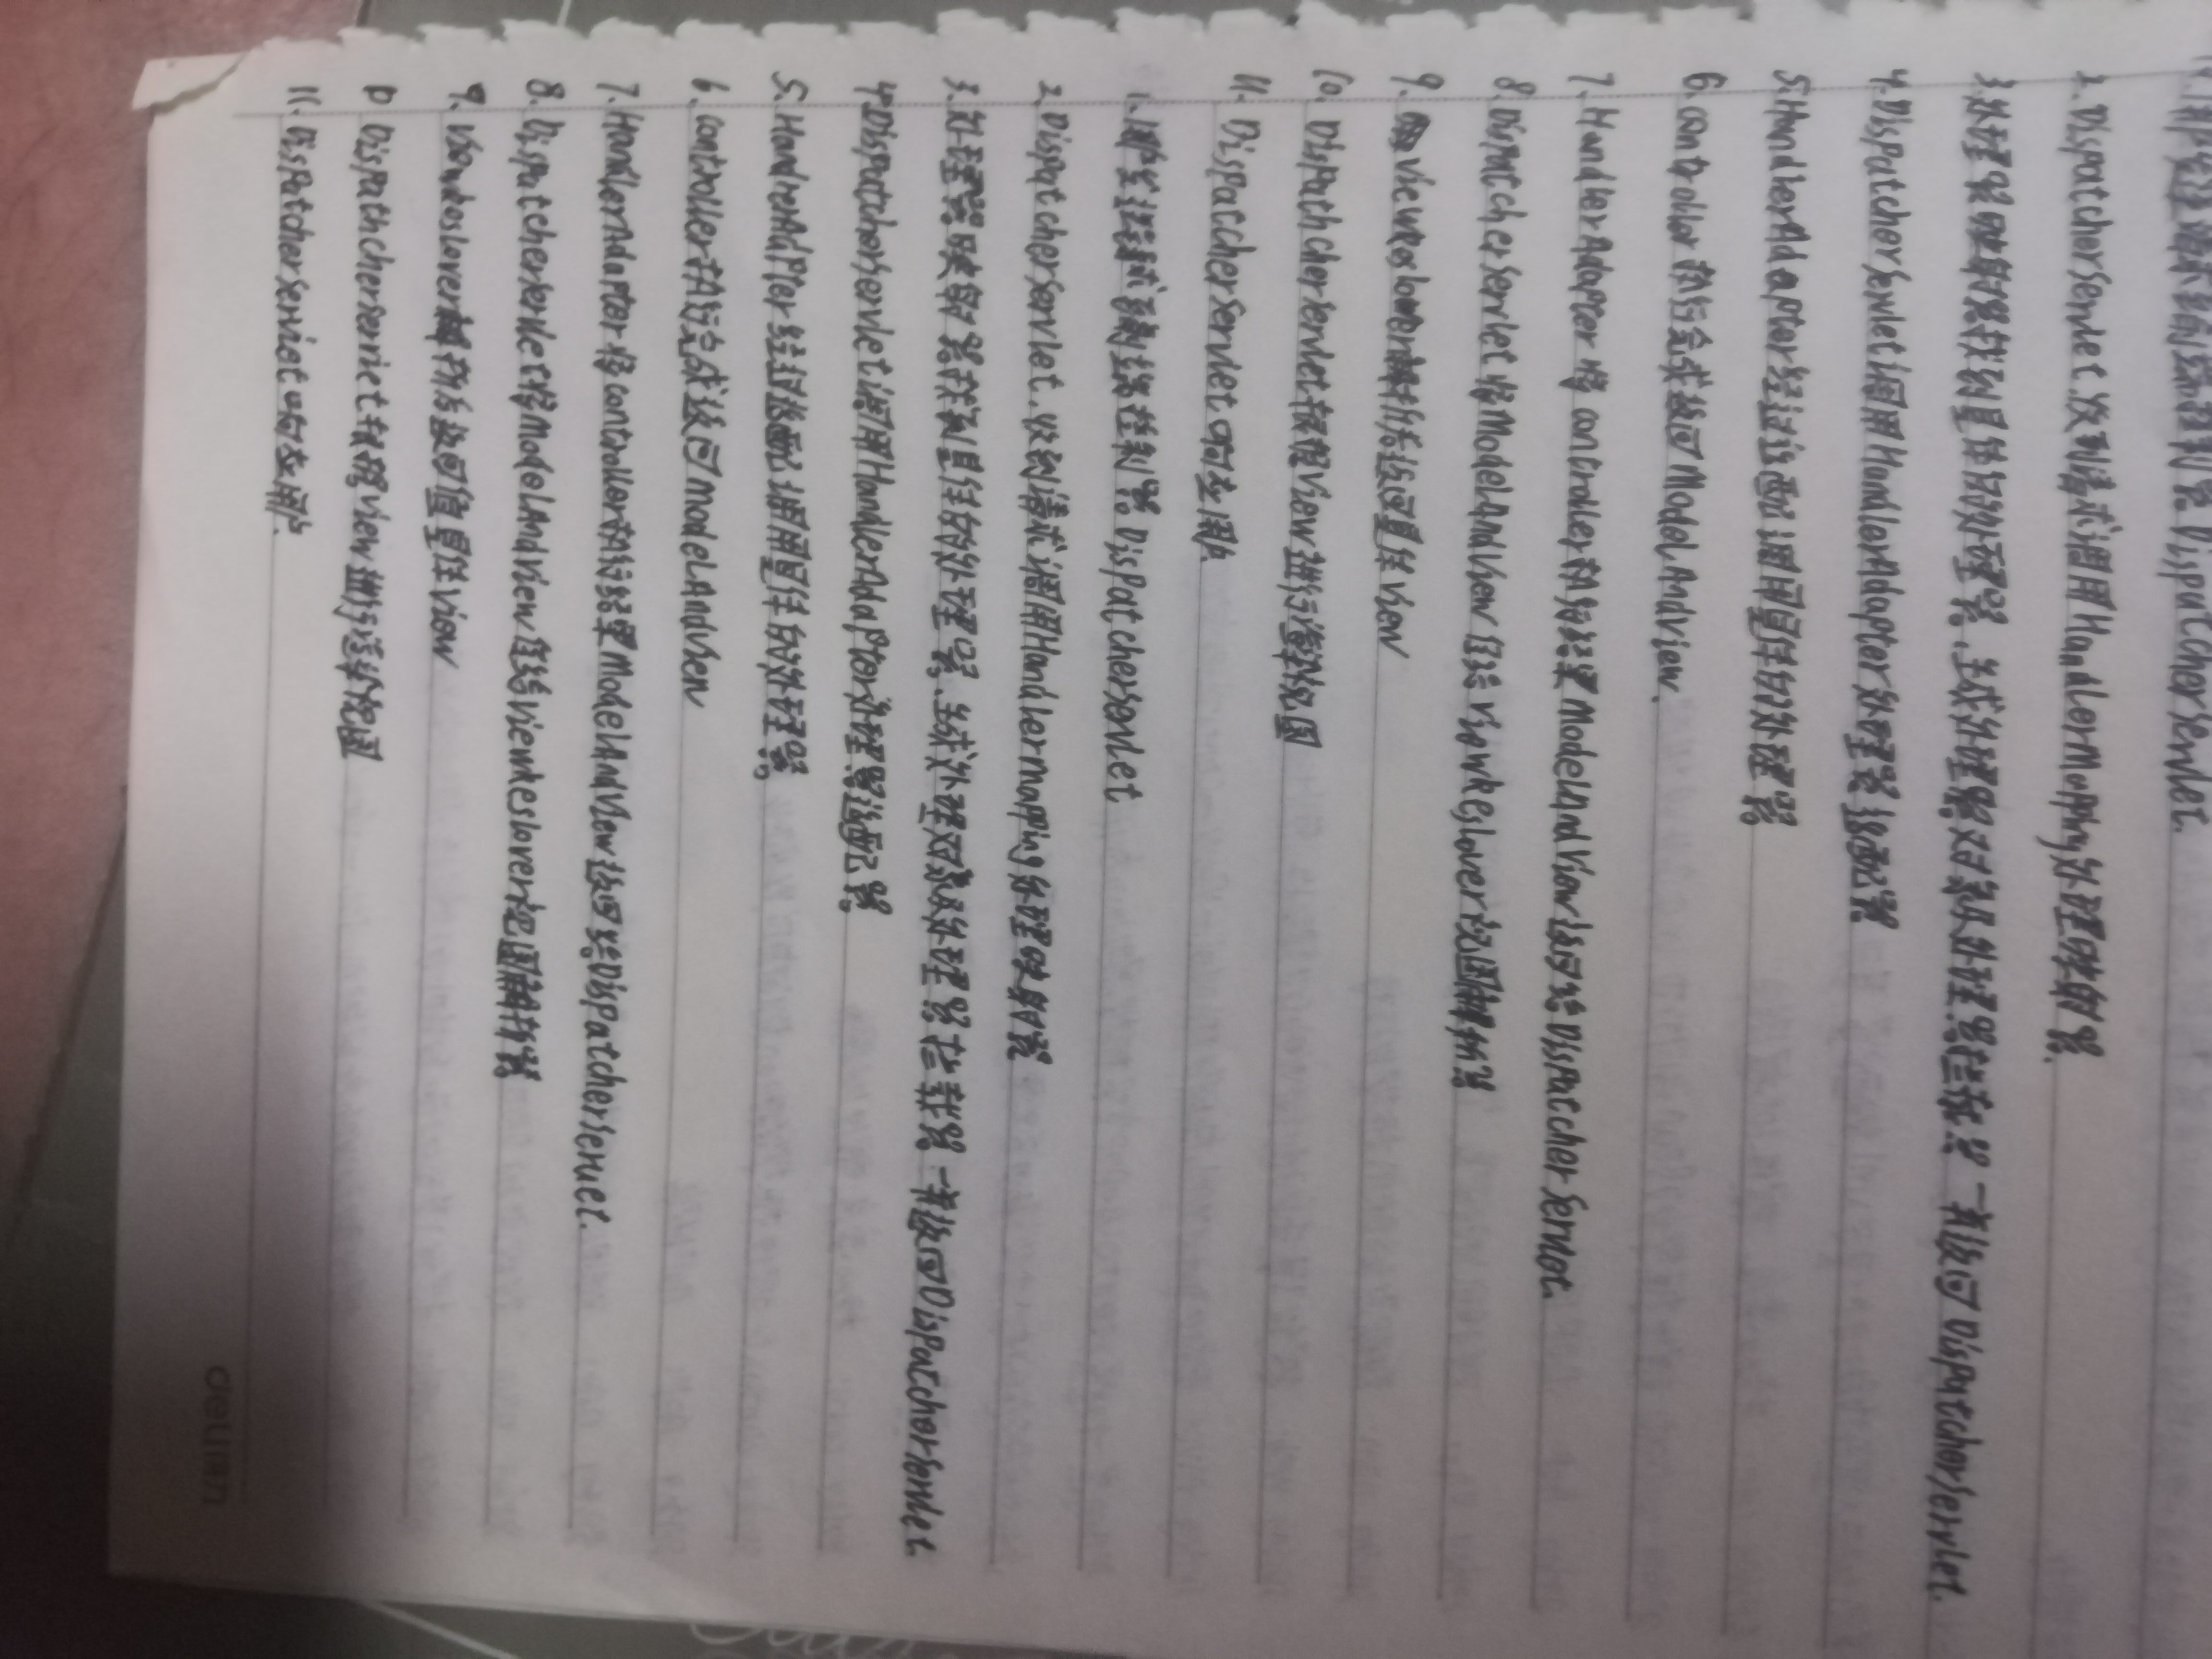 1.用户发送请求到前端控制器DispatcherServlet.
2. DispatcherServlet 收到请求调用HandlerMapping处理映射器.
3.处理器映射器找到具体的处理器.生成处理器对象及处理器拦截器 一并返回 DispatcherServlet.
4.DispatcherServlet调用HandlerAdapter处理器适配器
5.HandlerAdapter经过适配调用具体的处理器
6.controller执行完成返回ModelAndView.
7.HandlerAdapter将controller执行结果ModelAndView返回给Dispatcher Servlet.
8.DispatcherServlet将ModelAndView传给ViewReslover视图解析器
9. ViewReslover解析后返回具体View
10. DispathcherServlet根据View进行渲染视图
11. DispatcherServlet响应用户.
1.用户发送请求到前端控制器DispatcherServlet
2.DispatcherServlet.收到请求调用HandlerMapping处理映射器
3.处理器映射器找到具体的处理器.生成处理对象及处理器拦截器 一并返回DispatcherServlet.
4.DispatcherServlet调用HandlerAdapter处理器适配器
5.HandlerAdapter经过适配调用具体的处理器
6.controller执行完成返回ModelAndView
7.HandlerAdapter将controller执行结果ModelAndView返回给DispatcherServlet.
8.DispatcherServlet将ModelAndView传给ViewReslover视图解析器
9.ViewReslover解析后返回值具体View
10 DispathcherServlet根据View进行渲染视图
11.DispatcherServlet响应用户.
deli